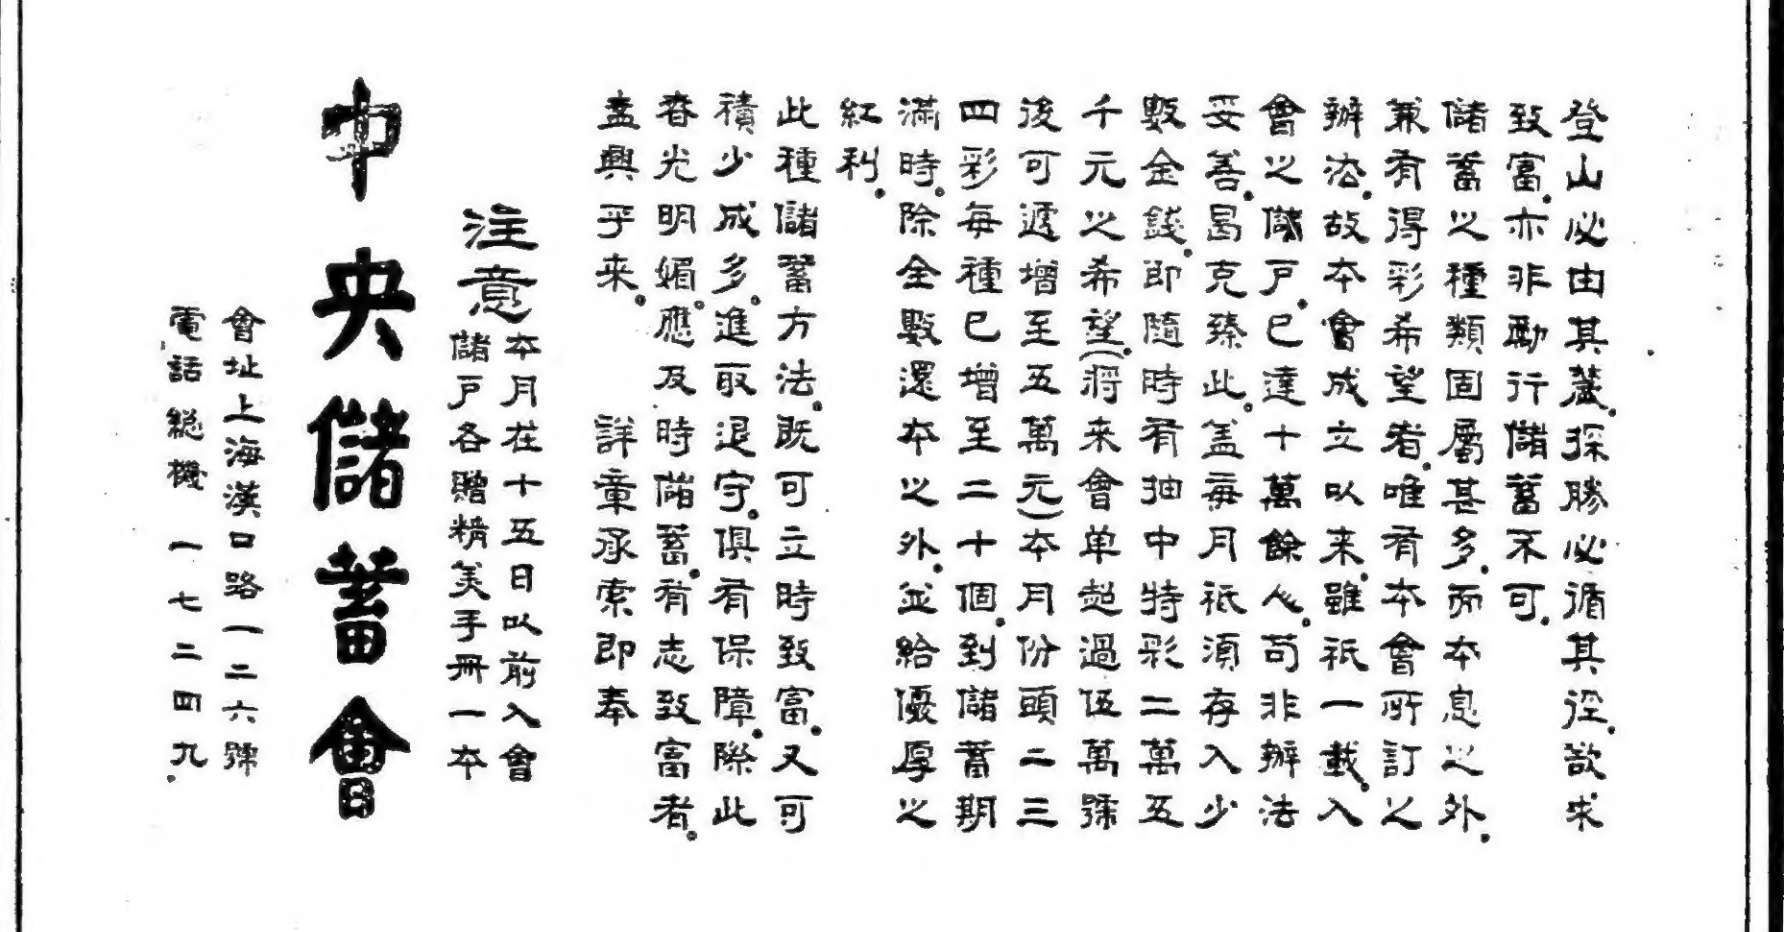 登山必由其麓。探勝必循其徑。欲求
致富。亦非勵行儲蓄不可。
儲蓄之種類固屬甚多。而本息之外。
兼有得彩希望者。唯有本會所訂之
辦法。故本會成立以來。雖祇一載。入
會之儲戶。已達十萬餘人。苟非辦法
妥善。曷克臻此。蓋每月祇須存入少
數金錢。即隨時有抽中特彩二萬五
千元之希望。(將來會单超過伍萬號
後可遞增至五萬元)本月份頭二三
四彩每種已增至二十個。到儲蓄期
滿時。除全數還本之外。並給優厚之
紅利。
此種儲蓄方法。既可立時致富。又可
積少成多。進取退守。俱有保障。際此
春光明媚。應及時儲蓄。有志致富者。
盍興乎来。 詳章承索即奉
注意
本月在十五日以前入會
儲戶各贈精美手冊一本
中央儲蓄會
會址上海漢口路一二六號
電話総機 一七二四九